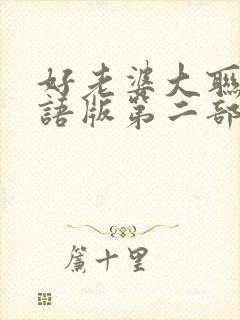 好老婆大聯
語版第二部
簾十里